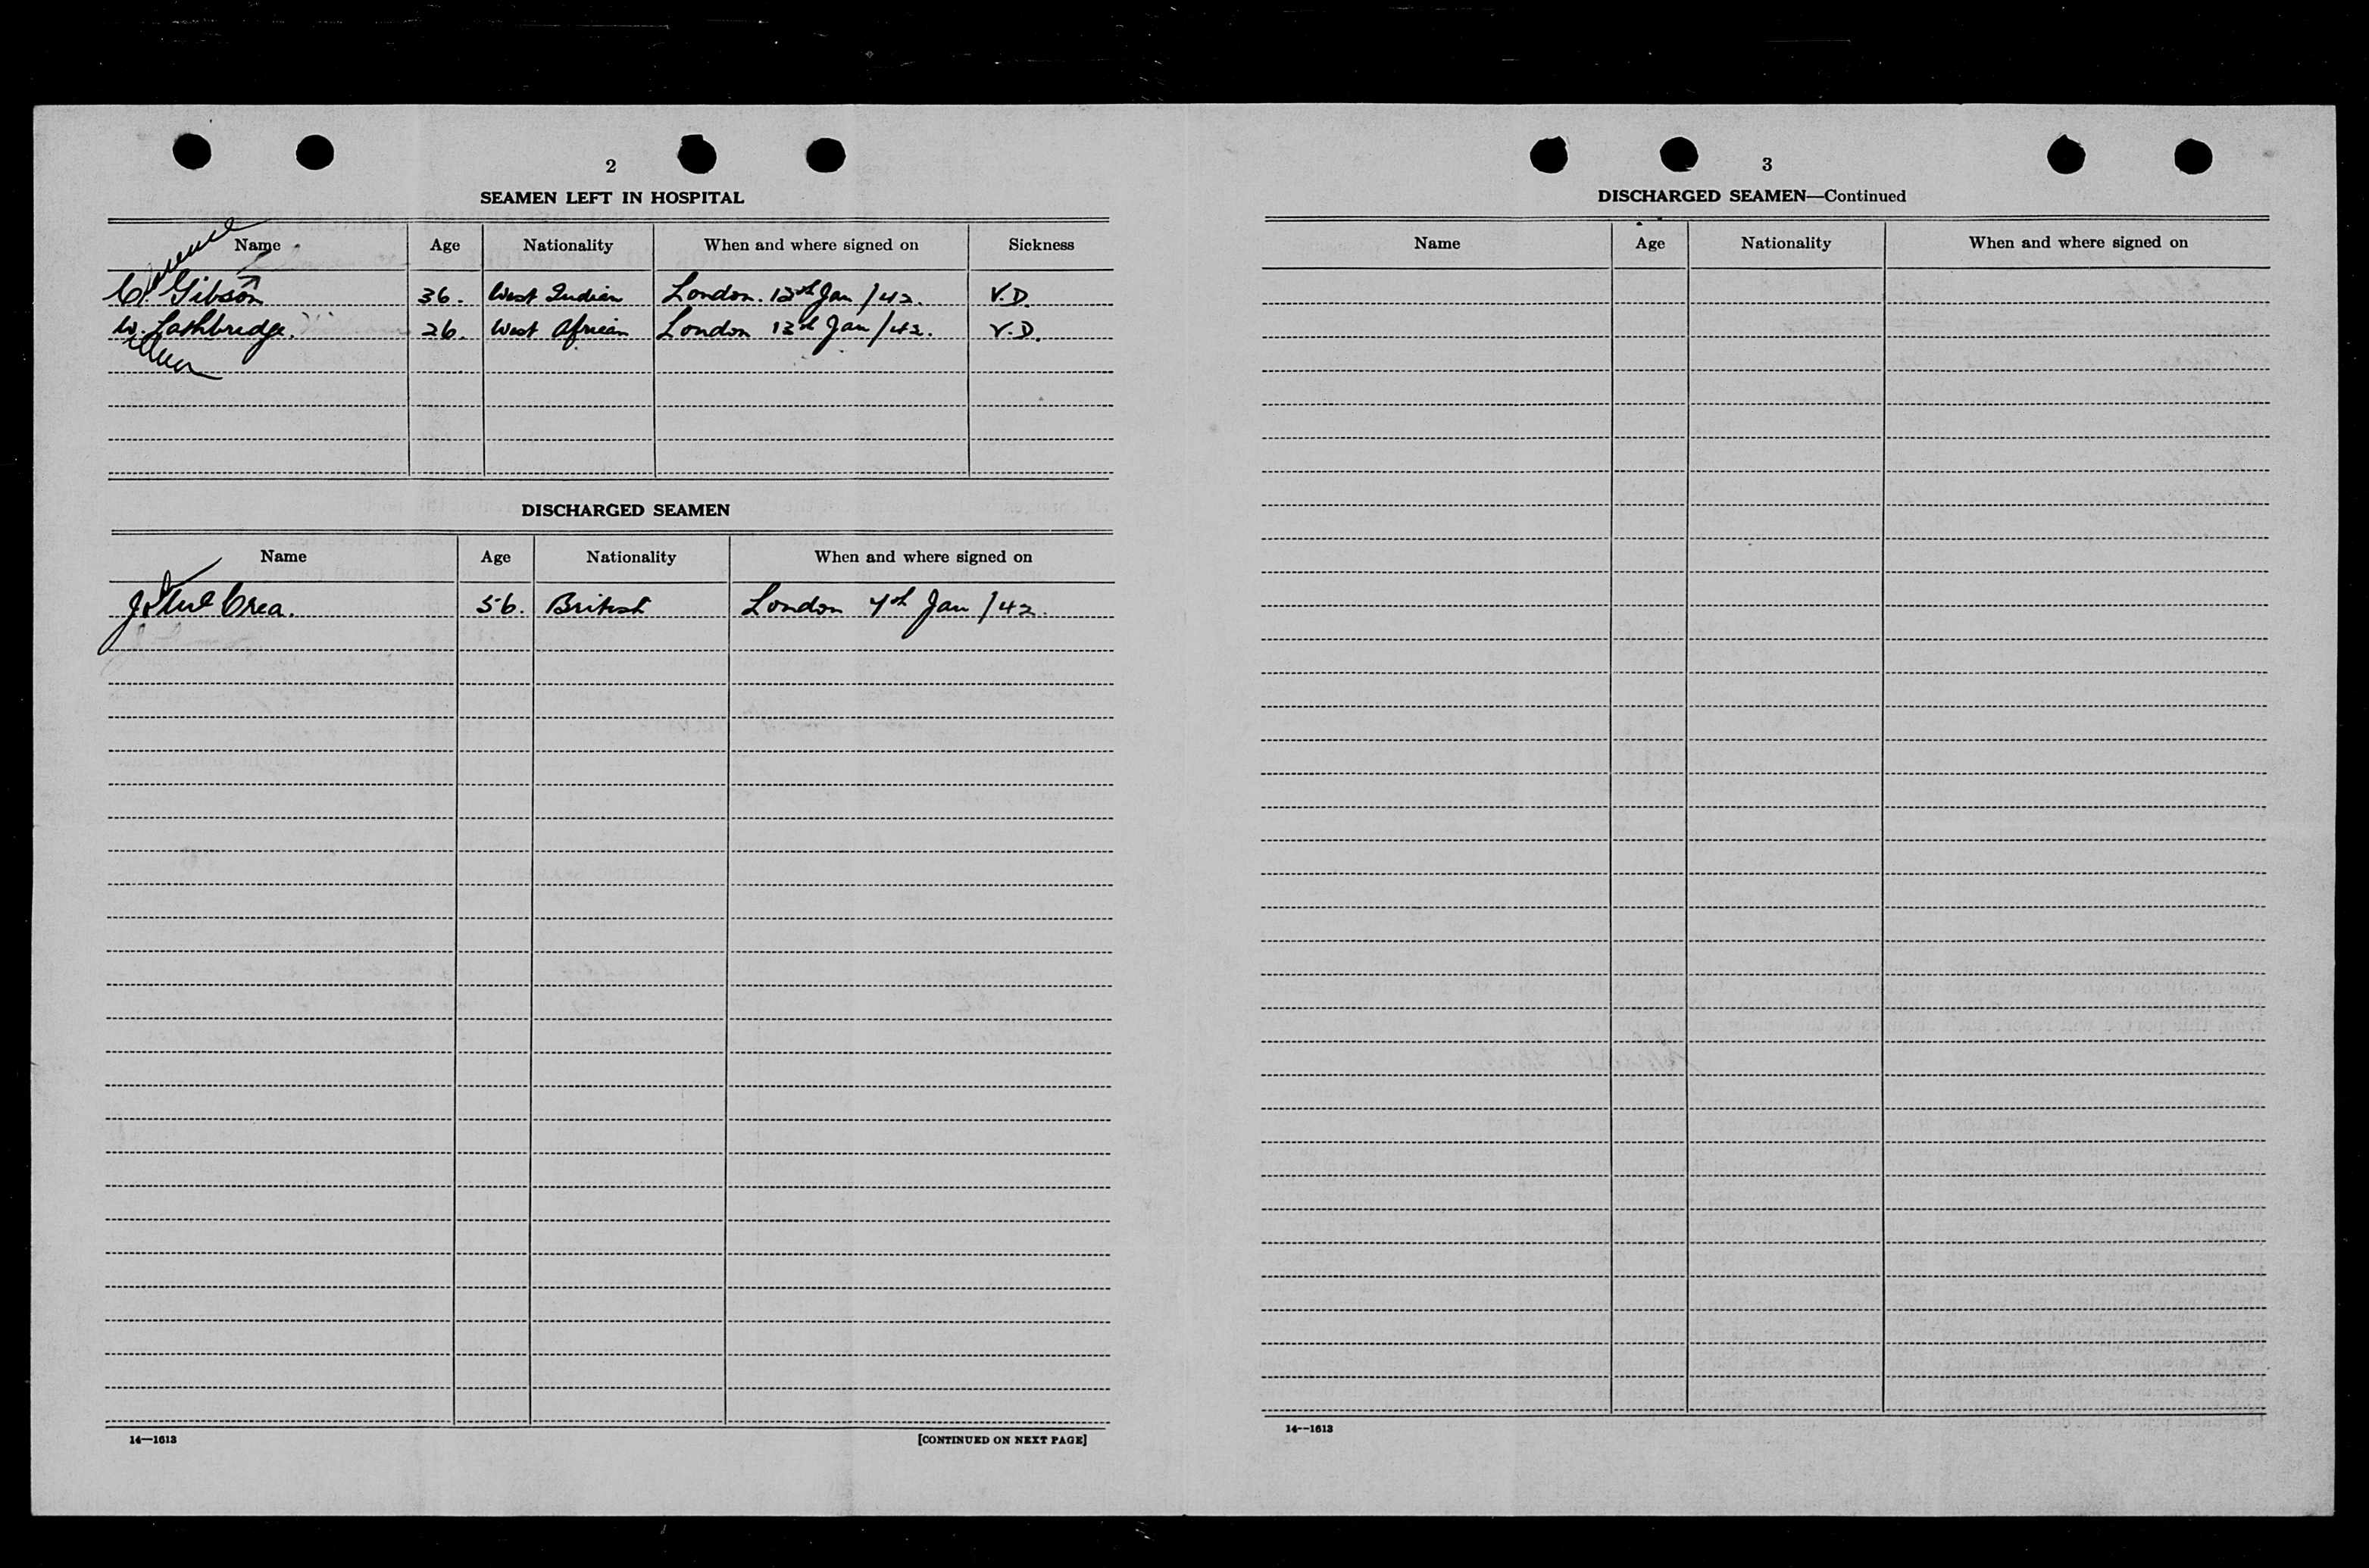 2
SEAMEN LEFT IN HOSPITAL
Name Age Nationality When and where signed on Sickness
C. Gibson 36. West Indian London. 13th Jan /42. V.D.
W. Lashbridge. 26. West African London 13th Jan /42. V.D.
DISCHARGED SEAMEN
Name Age Nationality When and where signed on
Crea. 56. British London 7th Jan /42.
14—1613
[CONTINUED ON NEXT PAGE]
3
DISCHARGED SEAMEN—Continued
Name Age Nationality When and where signed on
14—1613